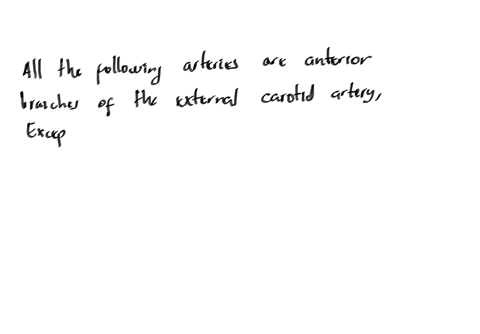 All the following arteries are anterior
branches of the external carotid artery,
Excep